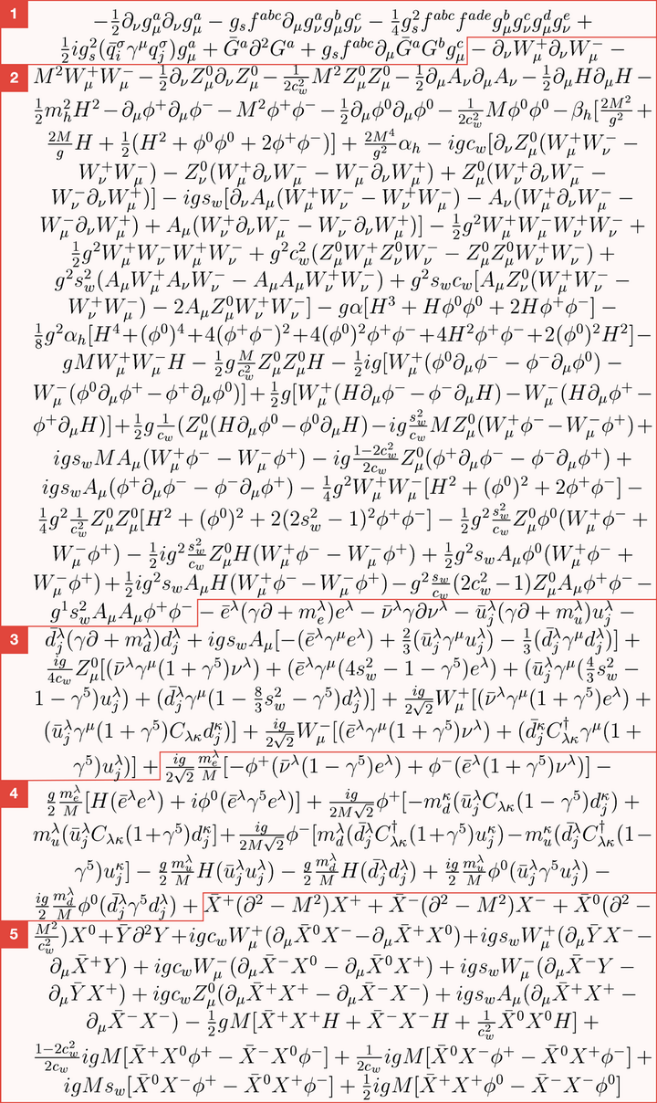 1
$-\frac{1}{2}\partial_\nu g^a_\mu \partial_\nu g^a_\mu - g_s f^{abc}\partial_\mu g^a_\nu g^b_\mu g^c_\nu - \frac{1}{4}g^2_s f^{abc}f^{ade}g^b_\mu g^c_\nu g^d_\mu g^e_\nu +$
$\frac{1}{2}ig^2_s(\bar{q}^\sigma_i\gamma^\mu q^\sigma_j)g^a_\mu + \bar{G}^a\partial^2G^a + g_s f^{abc}\partial_\mu\bar{G}^aG^bg^c_\mu - \partial_\nu W^+_\mu\partial_\nu W^-_\mu -$
2
$M^2W^+_\mu W^-_\mu - \frac{1}{2}\partial_\nu Z^0_\mu\partial_\nu Z^0_\mu - \frac{1}{2c^2_w}M^2Z^0_\mu Z^0_\mu - \frac{1}{2}\partial_\mu A_\nu\partial_\mu A_\nu - \frac{1}{2}\partial_\mu H\partial_\mu H -$
$\frac{1}{2}m^2_hH^2 - \partial_\mu\phi^+\partial_\mu\phi^- - M^2\phi^+\phi^- - \frac{1}{2}\partial_\mu\phi^0\partial_\mu\phi^0 - \frac{1}{2c^2_w}M\phi^0\phi^0 - \beta_h[\frac{2M^2}{g^2} +$
$\frac{2M}{g}H + \frac{1}{2}(H^2 + \phi^0\phi^0 + 2\phi^+\phi^-)] + \frac{2M^4}{g^2}\alpha_h - igc_w[\partial_\nu Z^0_\mu(W^+_\mu W^-_\nu -$
$W^+_\nu W^-_\mu) - Z^0_\nu(W^+_\mu\partial_\nu W^-_\mu - W^-_\mu\partial_\nu W^+_\mu) + Z^0_\mu(W^+_\nu\partial_\nu W^-_\mu -$
$W^-_\nu\partial_\nu W^+_\mu)] - igs_w[\partial_\nu A_\mu(W^+_\mu W^-_\nu - W^+_\nu W^-_\mu) - A_\nu(W^+_\mu\partial_\nu W^-_\mu -$
$W^-_\mu\partial_\nu W^+_\mu) + A_\mu(W^+_\nu\partial_\nu W^-_\mu - W^-_\nu\partial_\nu W^+_\mu)] - \frac{1}{2}g^2W^+_\mu W^-_\mu W^+_\nu W^-_\nu +$
$\frac{1}{2}g^2W^+_\mu W^-_\nu W^+_\mu W^-_\nu + g^2c^2_w(Z^0_\mu W^+_\mu Z^0_\nu W^-_\nu - Z^0_\mu Z^0_\mu W^+_\nu W^-_\nu) +$
$g^2s^2_w(A_\mu W^+_\mu A_\nu W^-_\nu - A_\mu A_\mu W^+_\nu W^-_\nu) + g^2s_wc_w[A_\mu Z^0_\nu(W^+_\mu W^-_\nu -$
$W^+_\nu W^-_\mu) - 2A_\mu Z^0_\mu W^+_\nu W^-_\nu] - g\alpha[H^3 + H\phi^0\phi^0 + 2H\phi^+\phi^-] -$
$\frac{1}{8}g^2\alpha_h[H^4 + (\phi^0)^4 + 4(\phi^+\phi^-)^2 + 4(\phi^0)^2\phi^+\phi^- + 4H^2\phi^+\phi^- + 2(\phi^0)^2H^2] -$
$gMW^+_\mu W^-_\mu H - \frac{1}{2}g\frac{M}{c^2_w}Z^0_\mu Z^0_\mu H - \frac{1}{2}ig[W^+_\mu(\phi^0\partial_\mu\phi^- - \phi^-\partial_\mu\phi^0) -$
$W^-_\mu(\phi^0\partial_\mu\phi^+ - \phi^+\partial_\mu\phi^0)] + \frac{1}{2}g[W^+_\mu(H\partial_\mu\phi^- - \phi^-\partial_\mu H) - W^-_\mu(H\partial_\mu\phi^+ -$
$\phi^+\partial_\mu H)] + \frac{1}{2}g\frac{1}{c_w}(Z^0_\mu(H\partial_\mu\phi^0 - \phi^0\partial_\mu H) - ig\frac{s^2_w}{c_w}MZ^0_\mu(W^+_\mu\phi^- - W^-_\mu\phi^+) +$
$igs_wMA_\mu(W^+_\mu\phi^- - W^-_\mu\phi^+) - ig\frac{1-2c^2_w}{2c_w}Z^0_\mu(\phi^+\partial_\mu\phi^- - \phi^-\partial_\mu\phi^+) +$
$igs_wA_\mu(\phi^+\partial_\mu\phi^- - \phi^-\partial_\mu\phi^+) - \frac{1}{4}g^2W^+_\mu W^-_\mu[H^2 + (\phi^0)^2 + 2\phi^+\phi^-] -$
$\frac{1}{4}g^2\frac{1}{c^2_w}Z^0_\mu Z^0_\mu[H^2 + (\phi^0)^2 + 2(2s^2_w - 1)^2\phi^+\phi^-] - \frac{1}{2}g^2\frac{s^2_w}{c_w}Z^0_\mu\phi^0(W^+_\mu\phi^- +$
$W^-_\mu\phi^+) - \frac{1}{2}ig^2\frac{s^2_w}{c_w}Z^0_\mu H(W^+_\mu\phi^- - W^-_\mu\phi^+) + \frac{1}{2}g^2s_wA_\mu\phi^0(W^+_\mu\phi^- +$
$W^-_\mu\phi^+) + \frac{1}{2}ig^2s_wA_\mu H(W^+_\mu\phi^- - W^-_\mu\phi^+) - g^2\frac{s_w}{c_w}(2c^2_w - 1)Z^0_\mu A_\mu\phi^+\phi^- -$
$g^1s^2_wA_\mu A_\mu\phi^+\phi^- - \bar{e}^\lambda(\gamma\partial + m^\lambda_e)e^\lambda - \bar{\nu}^\lambda\gamma\partial\nu^\lambda - \bar{u}^\lambda_j(\gamma\partial + m^\lambda_u)u^\lambda_j -$
3
$\bar{d}^\lambda_j(\gamma\partial + m^\lambda_d)d^\lambda_j + igs_wA_\mu[-(\bar{e}^\lambda\gamma^\mu e^\lambda) + \frac{2}{3}(\bar{u}^\lambda_j\gamma^\mu u^\lambda_j) - \frac{1}{3}(\bar{d}^\lambda_j\gamma^\mu d^\lambda_j)] +$
$\frac{ig}{4c_w}Z^0_\mu[(\bar{\nu}^\lambda\gamma^\mu(1 + \gamma^5)\nu^\lambda) + (\bar{e}^\lambda\gamma^\mu(4s^2_w - 1 - \gamma^5)e^\lambda) + (\bar{u}^\lambda_j\gamma^\mu(\frac{4}{3}s^2_w -$
$1 - \gamma^5)u^\lambda_j) + (\bar{d}^\lambda_j\gamma^\mu(1 - \frac{8}{3}s^2_w - \gamma^5)d^\lambda_j)] + \frac{ig}{2\sqrt{2}}W^+_\mu[(\bar{\nu}^\lambda\gamma^\mu(1 + \gamma^5)e^\lambda) +$
$(\bar{u}^\lambda_j\gamma^\mu(1 + \gamma^5)C_{\lambda\kappa}d^\kappa_j)] + \frac{ig}{2\sqrt{2}}W^-_\mu[(\bar{e}^\lambda\gamma^\mu(1 + \gamma^5)\nu^\lambda) + (\bar{d}^\kappa_jC^\dagger_{\lambda\kappa}\gamma^\mu(1 +$
$\gamma^5)u^\lambda_j)] + \frac{ig}{2\sqrt{2}}\frac{m^\lambda_e}{M}[-\phi^+(\bar{\nu}^\lambda(1 - \gamma^5)e^\lambda) + \phi^-(\bar{e}^\lambda(1 + \gamma^5)\nu^\lambda)] -$
4
$\frac{g}{2}\frac{m^\lambda_e}{M}[H(\bar{e}^\lambda e^\lambda) + i\phi^0(\bar{e}^\lambda\gamma^5e^\lambda)] + \frac{ig}{2M\sqrt{2}}\phi^+[-m^\kappa_d(\bar{u}^\lambda_jC_{\lambda\kappa}(1 - \gamma^5)d^\kappa_j) +$
$m^\lambda_u(\bar{u}^\lambda_jC_{\lambda\kappa}(1 + \gamma^5)d^\kappa_j] + \frac{ig}{2M\sqrt{2}}\phi^-[m^\lambda_d(\bar{d}^\lambda_jC^\dagger_{\lambda\kappa}(1 + \gamma^5)u^\kappa_j) - m^\kappa_u(\bar{d}^\lambda_jC^\dagger_{\lambda\kappa}(1 -$
$\gamma^5)u^\kappa_j] - \frac{g}{2}\frac{m^\lambda_u}{M}H(\bar{u}^\lambda_ju^\lambda_j) - \frac{g}{2}\frac{m^\lambda_d}{M}H(\bar{d}^\lambda_jd^\lambda_j) + \frac{ig}{2}\frac{m^\lambda_u}{M}\phi^0(\bar{u}^\lambda_j\gamma^5u^\lambda_j) -$
$\frac{ig}{2}\frac{m^\lambda_d}{M}\phi^0(\bar{d}^\lambda_j\gamma^5d^\lambda_j) + \bar{X}^+(\partial^2 - M^2)X^+ + \bar{X}^-(\partial^2 - M^2)X^- + \bar{X}^0(\partial^2 -$
5
$\frac{M^2}{c^2_w})X^0 + \bar{Y}\partial^2Y + igc_wW^+_\mu(\partial_\mu\bar{X}^0X^- - \partial_\mu\bar{X}^+X^0) + igs_wW^+_\mu(\partial_\mu\bar{Y}X^- -$
$\partial_\mu\bar{X}^+Y) + igc_wW^-_\mu(\partial_\mu\bar{X}^-X^0 - \partial_\mu\bar{X}^0X^+) + igs_wW^-_\mu(\partial_\mu\bar{X}^-Y -$
$\partial_\mu\bar{Y}X^+) + igc_wZ^0_\mu(\partial_\mu\bar{X}^+X^+ - \partial_\mu\bar{X}^-X^-) + igs_wA_\mu(\partial_\mu\bar{X}^+X^+ -$
$\partial_\mu\bar{X}^-X^-) - \frac{1}{2}gM[\bar{X}^+X^+H + \bar{X}^-X^-H + \frac{1}{c^2_w}\bar{X}^0X^0H] +$
$\frac{1-2c^2_w}{2c_w}igM[\bar{X}^+X^0\phi^+ - \bar{X}^-X^0\phi^-] + \frac{1}{2c_w}igM[\bar{X}^0X^-\phi^+ - \bar{X}^0X^+\phi^-] +$
$igMs_w[\bar{X}^0X^-\phi^+ - \bar{X}^0X^+\phi^-] + \frac{1}{2}igM[\bar{X}^+X^+\phi^0 - \bar{X}^-X^-\phi^0]$